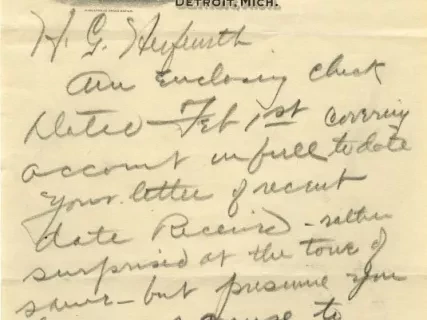 DETROIT, MICH.
H. G.
Am Enclosing Check
Dated Feb 1st covering
account in full to date
Your letter of recent
date Received - rather
surprised at the tone of
same - but presume you
to